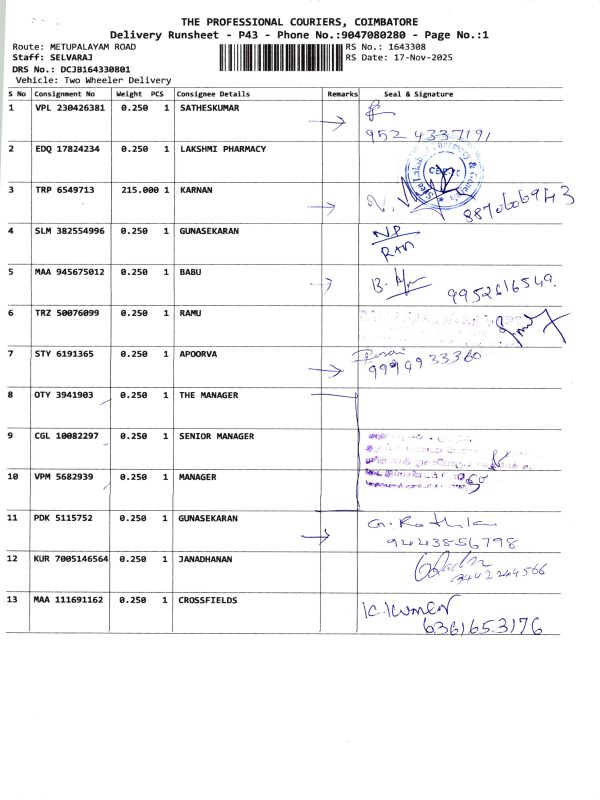 THE PROFESSIONAL COURIERS, COIMBATORE
Delivery Runsheet - P43 - Phone No.:9047080280 - Page No.:1
Route: METUPALAYAM ROAD RS No.: 1643308
Staff: SELVARAJ RS Date: 17-Nov-2025
DRS No.: DCJB164330801
Vehicle: Two Wheeler Delivery
S No Consignment No Weight PCS Consignee Details Remarks Seal & Signature
1 VPL 230426381 0.250 1 SATHESKUMAR
952 4337191
2 EDQ 17824234 0.250 1 LAKSHMI PHARMACY
3 TRP 6549713 215.000 1 KARNAN
8870606943
4 SLM 382554996 0.250 1 GUNASEKARAN NP
5 MAA 945675012 0.250 1 BABU
9952616549.
6 TRZ 50076099 0.250 1 RAMU
7 STY 6191365 0.250 1 APOORVA
9994933360
8 OTY 3941903 0.250 1 THE MANAGER
9 CGL 10082297 0.250 1 SENIOR MANAGER
10 VPM 5682939 0.250 1 MANAGER
11 PDK 5115752 0.250 1 GUNASEKARAN
9443856798
12 KUR 7005146564 0.250 1 JANADHANAN
9442244566
13 MAA 111691162 0.250 1 CROSSFIELDS
6361653176